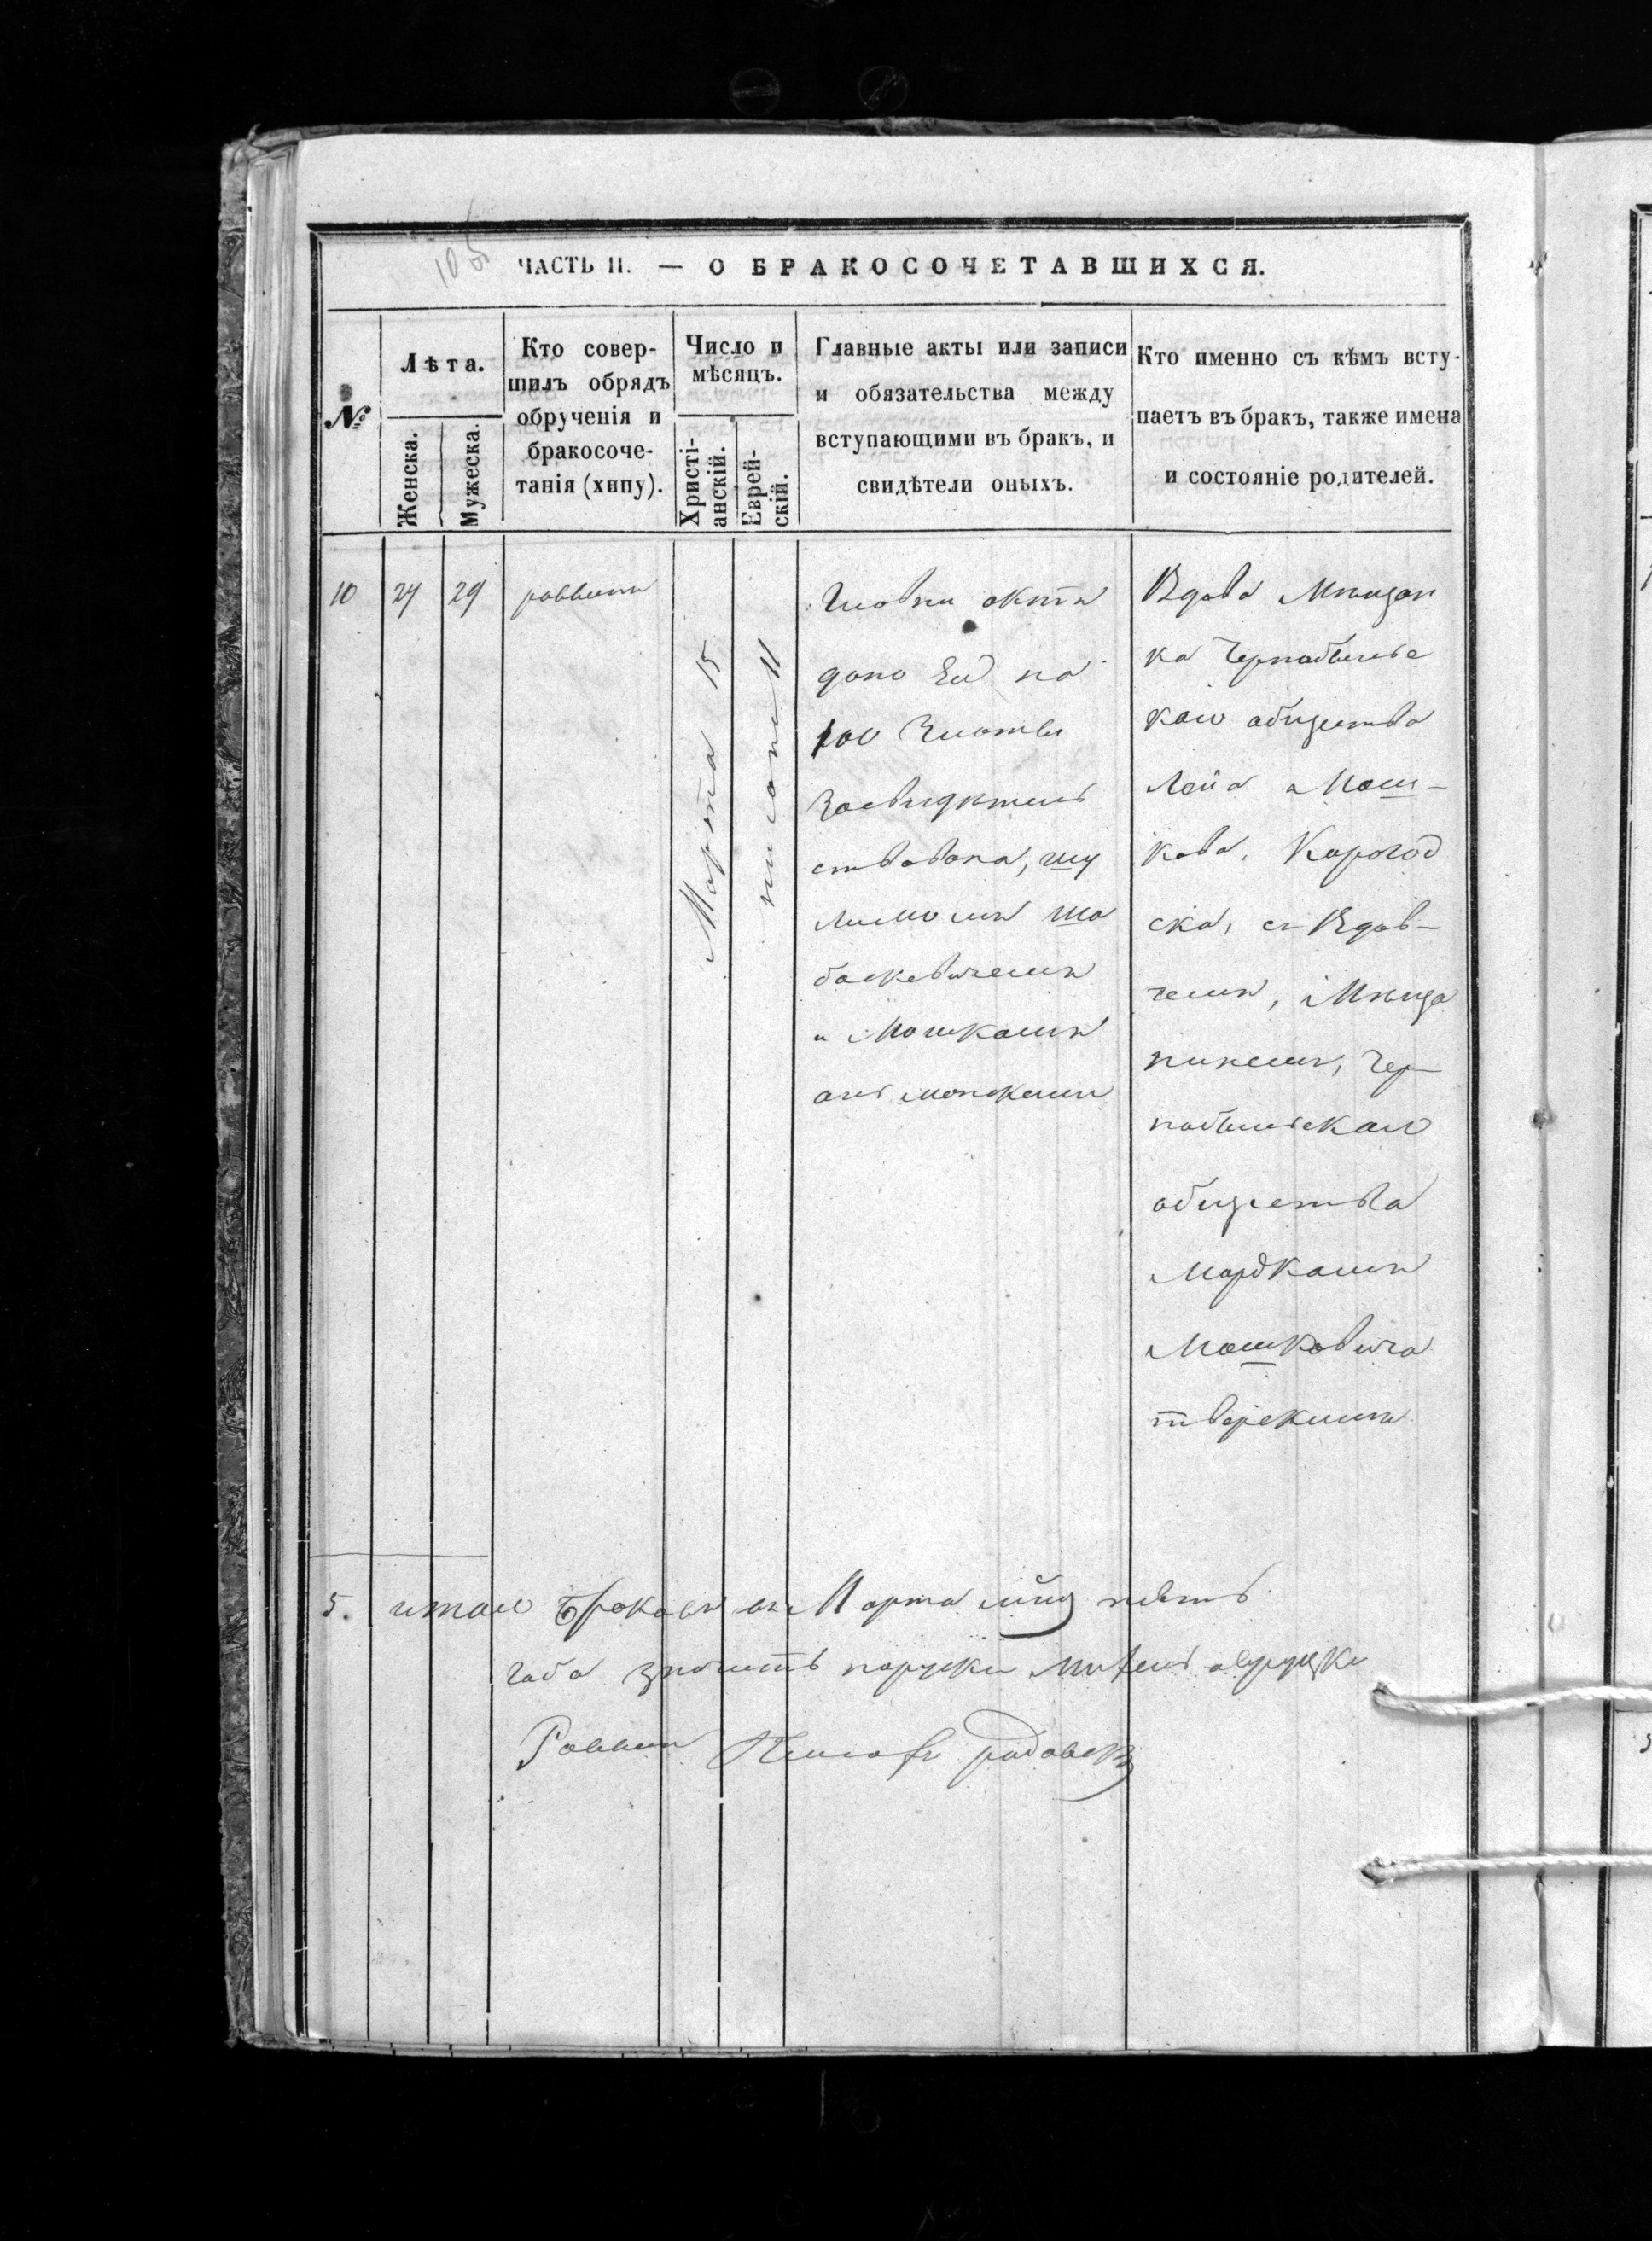 105
ЧАСТЬ II. — О БРАКОСОЧЕТАВШИХСЯ.
№
Лѣта.
Женска.
Мужеска.
Кто совер-
шилъ обрядъ
обрученія и
бракосоче-
танія (хипу).
Число и
мѣсяцъ.
Христі-
анскій.
Еврей-
скій.
Главные акты или записи
и обязательства между
вступающими въ бракъ, и
свидѣтели оныхъ.
Кто именно съ кѣмъ всту-
паетъ въ бракъ, также имена
и состояніе родителей.
10
24
29
раввинъ
Марта 15
нисань 11
актъ
дано Ей на
100 Злоты
Засвидѣтель
ствована, шу
лимомъ ша
баскевичемъ
и Мошкомъ
Вдова Мѣщан
ка Чернобыльс
каго абщества
Лейа Мош-
кова, Карогод
ска, съ Вдов-
чемъ, Мѣща
ниномъ, Чер-
нобыльскаго
абщества
Мардкомъ
Мошковича
тверскимъ
5. итаго Браковъ въ Марта мцѣ пять
Раввин